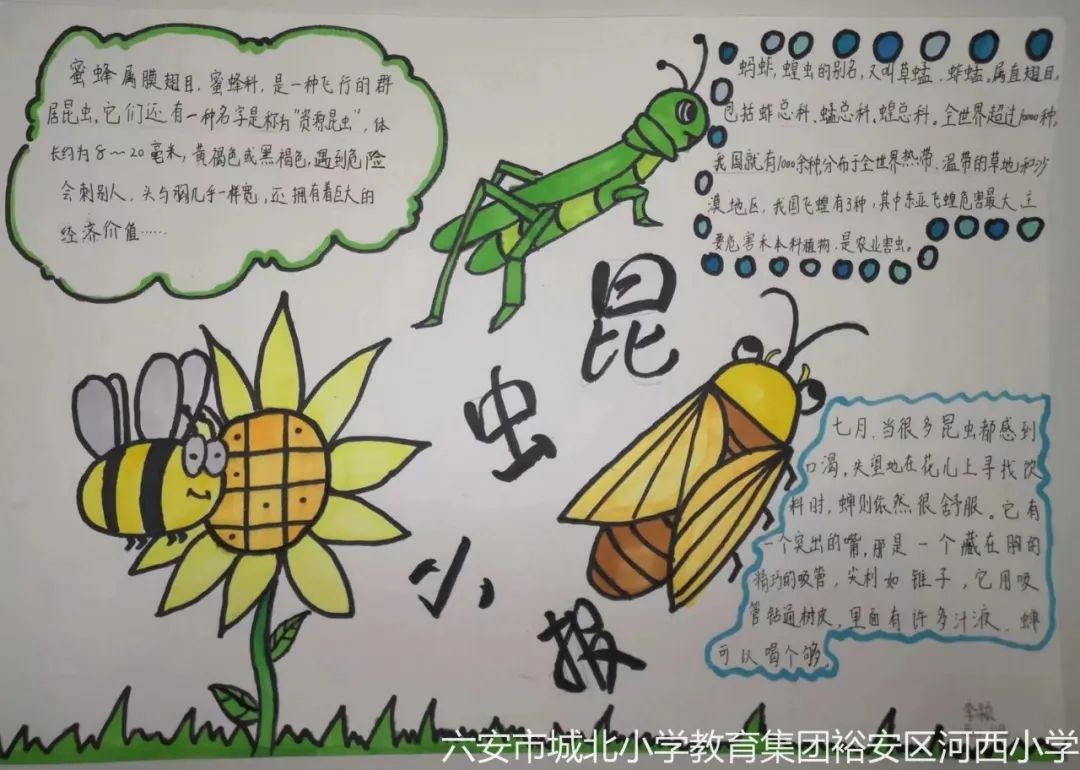 蜜蜂属膜翅目，蜜蜂科，是一种飞行的群
居昆虫，它们还有一种名字是称为"资源昆虫"，体
长约为8～20毫米，黄褐色或黑褐色，遇到危险
会刺别人，头与胸几乎一样宽，还拥有着巨大的
经济价值……
蚂蚱，蝗虫的别名，又叫草蜢、蚱蜢。属直翅目，
包括蚱总科、蜢总科、蝗总科。全世界超过10000种，
我国就有1000余种，分布于全世界热带、温带的草地和沙
漠地区，我国飞蝗有3种，其中东亚飞蝗危害最大，主
要危害禾本科植物，是农业害虫。
昆
虫
小
报
七月，当很多昆虫都感到
口渴，失望地在花儿上寻找饮
料时，蝉则依然很舒服。它有
一个突出的嘴，那是一个藏在胸的
精巧的吸管，尖利如锥子，它用吸
管钻通树皮，里面有许多汁液，蝉
可以喝个够。
六安市城北小学教育集团裕安区河西小学